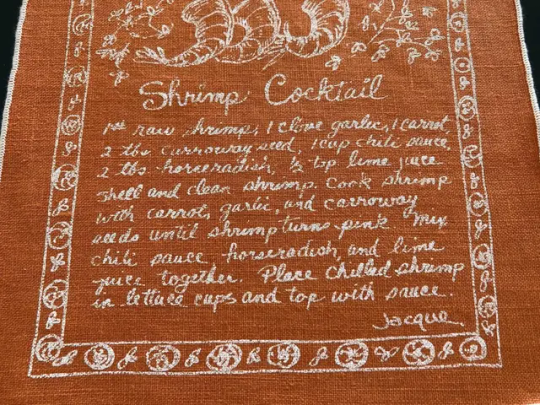 Shrimp Cocktail
1# raw shrimp, 1 clove garlic, 1 carrot,
2 tbs carroway seed, 1 cup chili sauce,
2 tbs horseradish, ½ tsp lime juice
Shell and clean shrimp. Cook shrimp
with carrot, garlic, and carroway
seeds until shrimp turns pink. Mix
chili sauce, horseradish, and lime
juice together. Place chilled shrimp
in lettuce cups and top with sauce.
Jacque